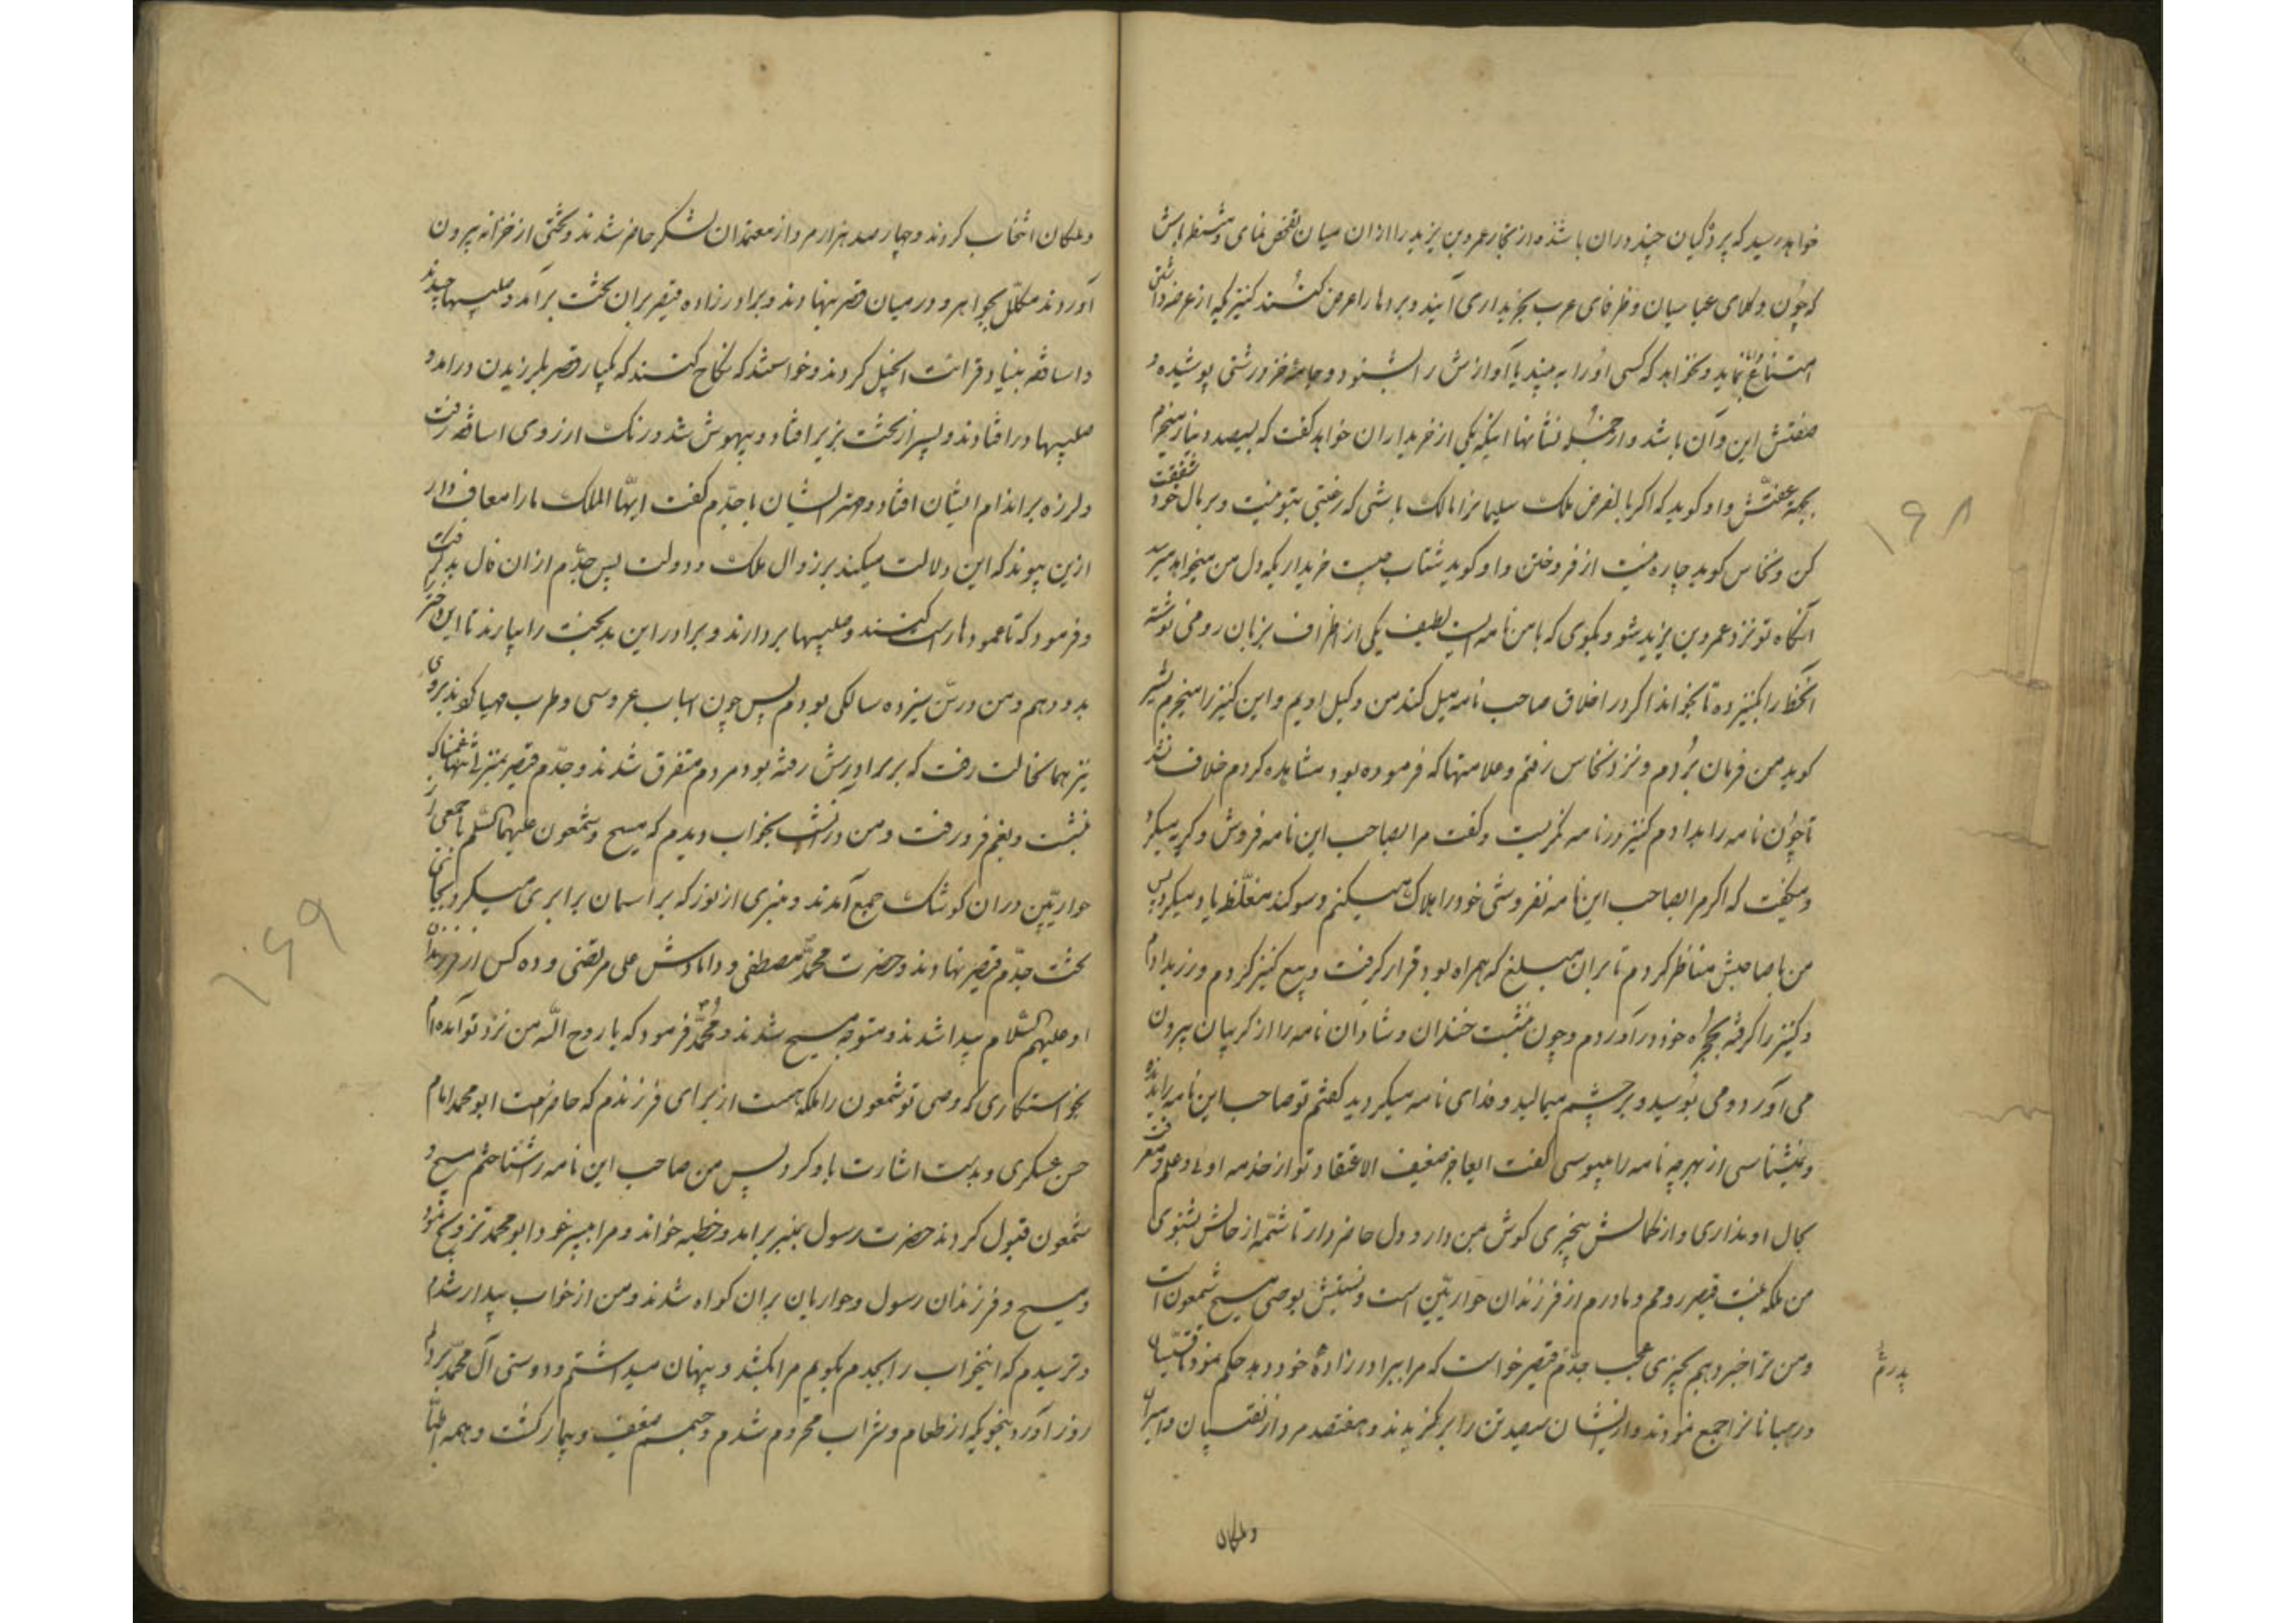 خواهد رسید که بردگیان چند دران باشند و از تجار عمرو بن یزید را ازان میان تفحص نمای و منتظر باش
که چون وکلای عباسیان و ظرفای عرب بخریداری آیند و بردها را عرض کنند کنیزکیه از عرضه داشتن
امتناع نماید و نخواهد که کسی او را به بیند یا آوازش را بشنود و جامهٔ خز درشتی پوشیده و
صفتش این و آن باشد و از جمله نشانها اینکه یکی از خریداران خواهد گفت که بسیصد دینار میخرم
بجهة عفتش و او گوید که اگر بالفرض ملک سلیمانرا مالک باشی که رغبتی بتو نیست و بر مال خود شفقت
کن و نخاس گوید چاره نیست از فروختن و او گوید شتاب چیست خریداریکه دل من میخواهد میرسد
آنگاه تو نزد عمرو بن یزید شو و بگوی که با من نامه ایست لطیف یکی از اشراف بزبان رومی نوشته
آنخط را بکنیز ده تا بخواند اگر در اخلاق صاحب نامه میل کند من وکیل اویم و این کنیز را میخرم بشیر
گوید من فرمان بردم و نزد نخاس رفتم و علامتها که فرموده بود مشاهده کردم خلاف نشد
تا چون نامه را بدادم کنیز در نامه نگریست و گفت مرا بصاحب این نامه فروش و گریه میکرد
و میگفت که اگر مرا بصاحب این نامه نفروشی خود را هلاک میکنم و سوکند مغلظ یاد میکرد پس
من با صاحبش مناظر کردم تا بران مبلغ که همراه بود قرار گرفت و بیع کنیز کردم و زر بدادم
و کنیز را گرفته بحجرهٔ خود درآوردم و چون نشست خندان و شادان نامه را از گریبان بیرون
می آورد و می بوسید و بر چشم میمالید و فدای نامه میکردید گفتم تو صاحب این نامه را ندیده
و نمیشناسی از بهر چه نامه را میبوسی گفت ایعاجز ضعیف الاعتقاد تو از خدمه اوئی و علم و معرفت
بحال او نداری و از کمالش بیخبری گوش بمن دار و دل حاضر دار تا شمّه از حالش بشنوی
من ملکه بنت قیصر رومم و مادرم از فرزندان حواریین است و نسبتش بوصی مسیح شمعون است
و من ترا خبر دهم بچیزی عجب جدّم قیصر خواست که مرا ببرادرزادهٔ خود دهد حکم نمود تا قسیسان
پدرم
و رهبانانرا جمع نمودند و ازیشان سیصد تن را برگزیدند و هفتصد مرد از نقیبان و امیران
و ملکان
۱۶۸
و ملکان انتخاب کردند و چهار صد هزار مرد از معتمدان لشکر حاضر شدند و تختی از خزانه بیرون
آوردند مکلّل بجواهر و در میان قصر بنهادند و برادرزاده قیصر بران تخت برآمد و صلیبها چیدند
و اساقفه بنیاد قرائت انجیل کردند و خواستند که نکاح کنند که یکبار قصر بلرزیدن درامد و
صلیبها درافتادند و پسر از تخت بزیر افتاد و بیهوش شد و رنک از روی اساقفه رفت
و لرزه بر اندام ایشان افتاد و مهتر ایشان با جدّم گفت ایهّا الملک ما را معاف دار
ازین پیوند که این دلالت میکند بر زوال ملک و دولت پس جدّم ازان فال بد گرفت
و فرمود که تا عمودها راست کنند و صلیبها بردارند و برادر این بدبخت را بیارند تا این دختر را
بدو دهم و من در سن سیزده سالگی بودم پس چون اسباب عروسی و طرب مهیا کردند بروی
نیز همانحالت رفت که بر برادرش رفته بود مردم متفرق شدند و جدّم قیصر بمنزل غمناک
بنشست و بغم فرو رفت و من درآنشب بخواب دیدم که مسیح و شمعون علیهما السّلم با جمعی از
حواریین دران کوشک جمع آمدند و منبری از نور که بر اسمان برابری میکرد بجای
تخت جدّم قیصر نهادند و حضرت محمّد مصطفی و دامادش علی مرتضی و ده کس از فرزندان
او علیهم السّلام پیدا شدند و متوجه مسیح شدند و محمّد فرمود که یا روح اللّه من نزد تو آمده ام
بخواستکاری که وصی تو شمعون را ملکه هست از برای فرزندم که حاضرست ابو محمد امام
حسن عسکری و بدست اشارت باو کرد پس من صاحب این نامه را شناختم مسیح و
شمعون قبول کردند حضرت رسول بمنبر برامد و خطبه خواند و مرا بپسر خود ابو محمد تزویج نمود
و مسیح و فرزندان رسول و حواریان بران گواه شدند و من از خواب بیدار شدم
و ترسیدم که اینخواب را بجدم بگویم مرا بکشد و پنهان میداشتم و دوستی آل محمّد بر دلم
روز آورد بنحویکه از طعام و شراب محروم شدم و جسم ضعیف و بیمار گشت و همه اطبّا
۱۶۹